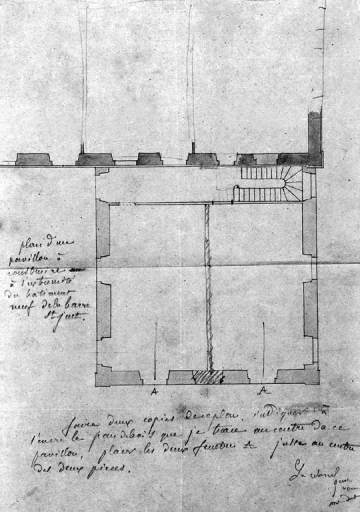 plan d'un
pavillon à
construire
à l'extremité
du batiment
neuf de la barre
St Just.
A A
faire deux copies de ce plan, indiquer à
l'encre le pan de bois que je trace au centre de ce
pavillon, placer les deux fenetres A juste au centre
des deux pieces.